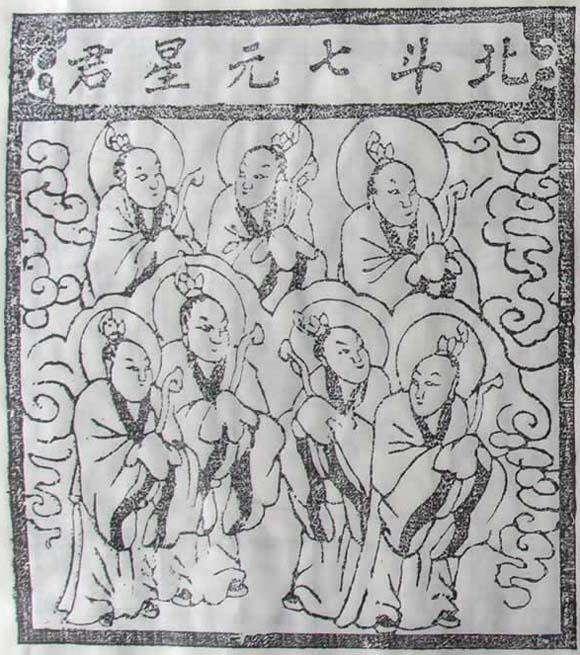 北斗七元星君